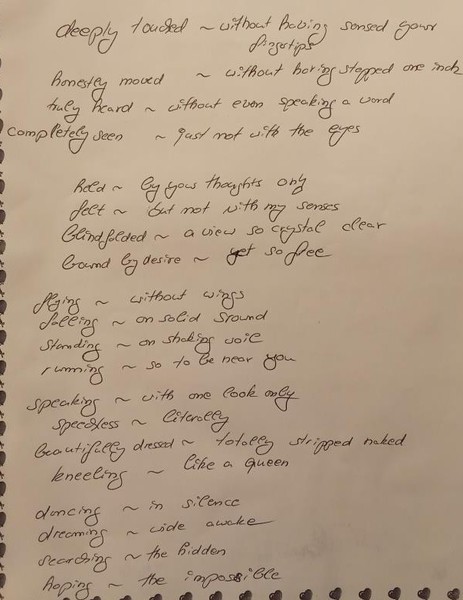 deeply touched ~ without having sensed your
fingertips
honestly moved ~ without having stepped one inch
truly heard ~ without even speaking a word
completely seen ~ just not with the eyes
held ~ by your thoughts only
felt ~ but not with my senses
blindfolded ~ a view so crystal clear
bound by desire ~ yet so free
flying ~ without wings
falling ~ on solid ground
standing ~ on shaking soil
running ~ so to be near you
speaking ~ with one look only
speechless ~ literally
beautifully dressed ~ totally stripped naked
kneeling ~ like a queen
dancing ~ in silence
dreaming ~ wide awake
searching ~ the hidden
hoping ~ the impossible